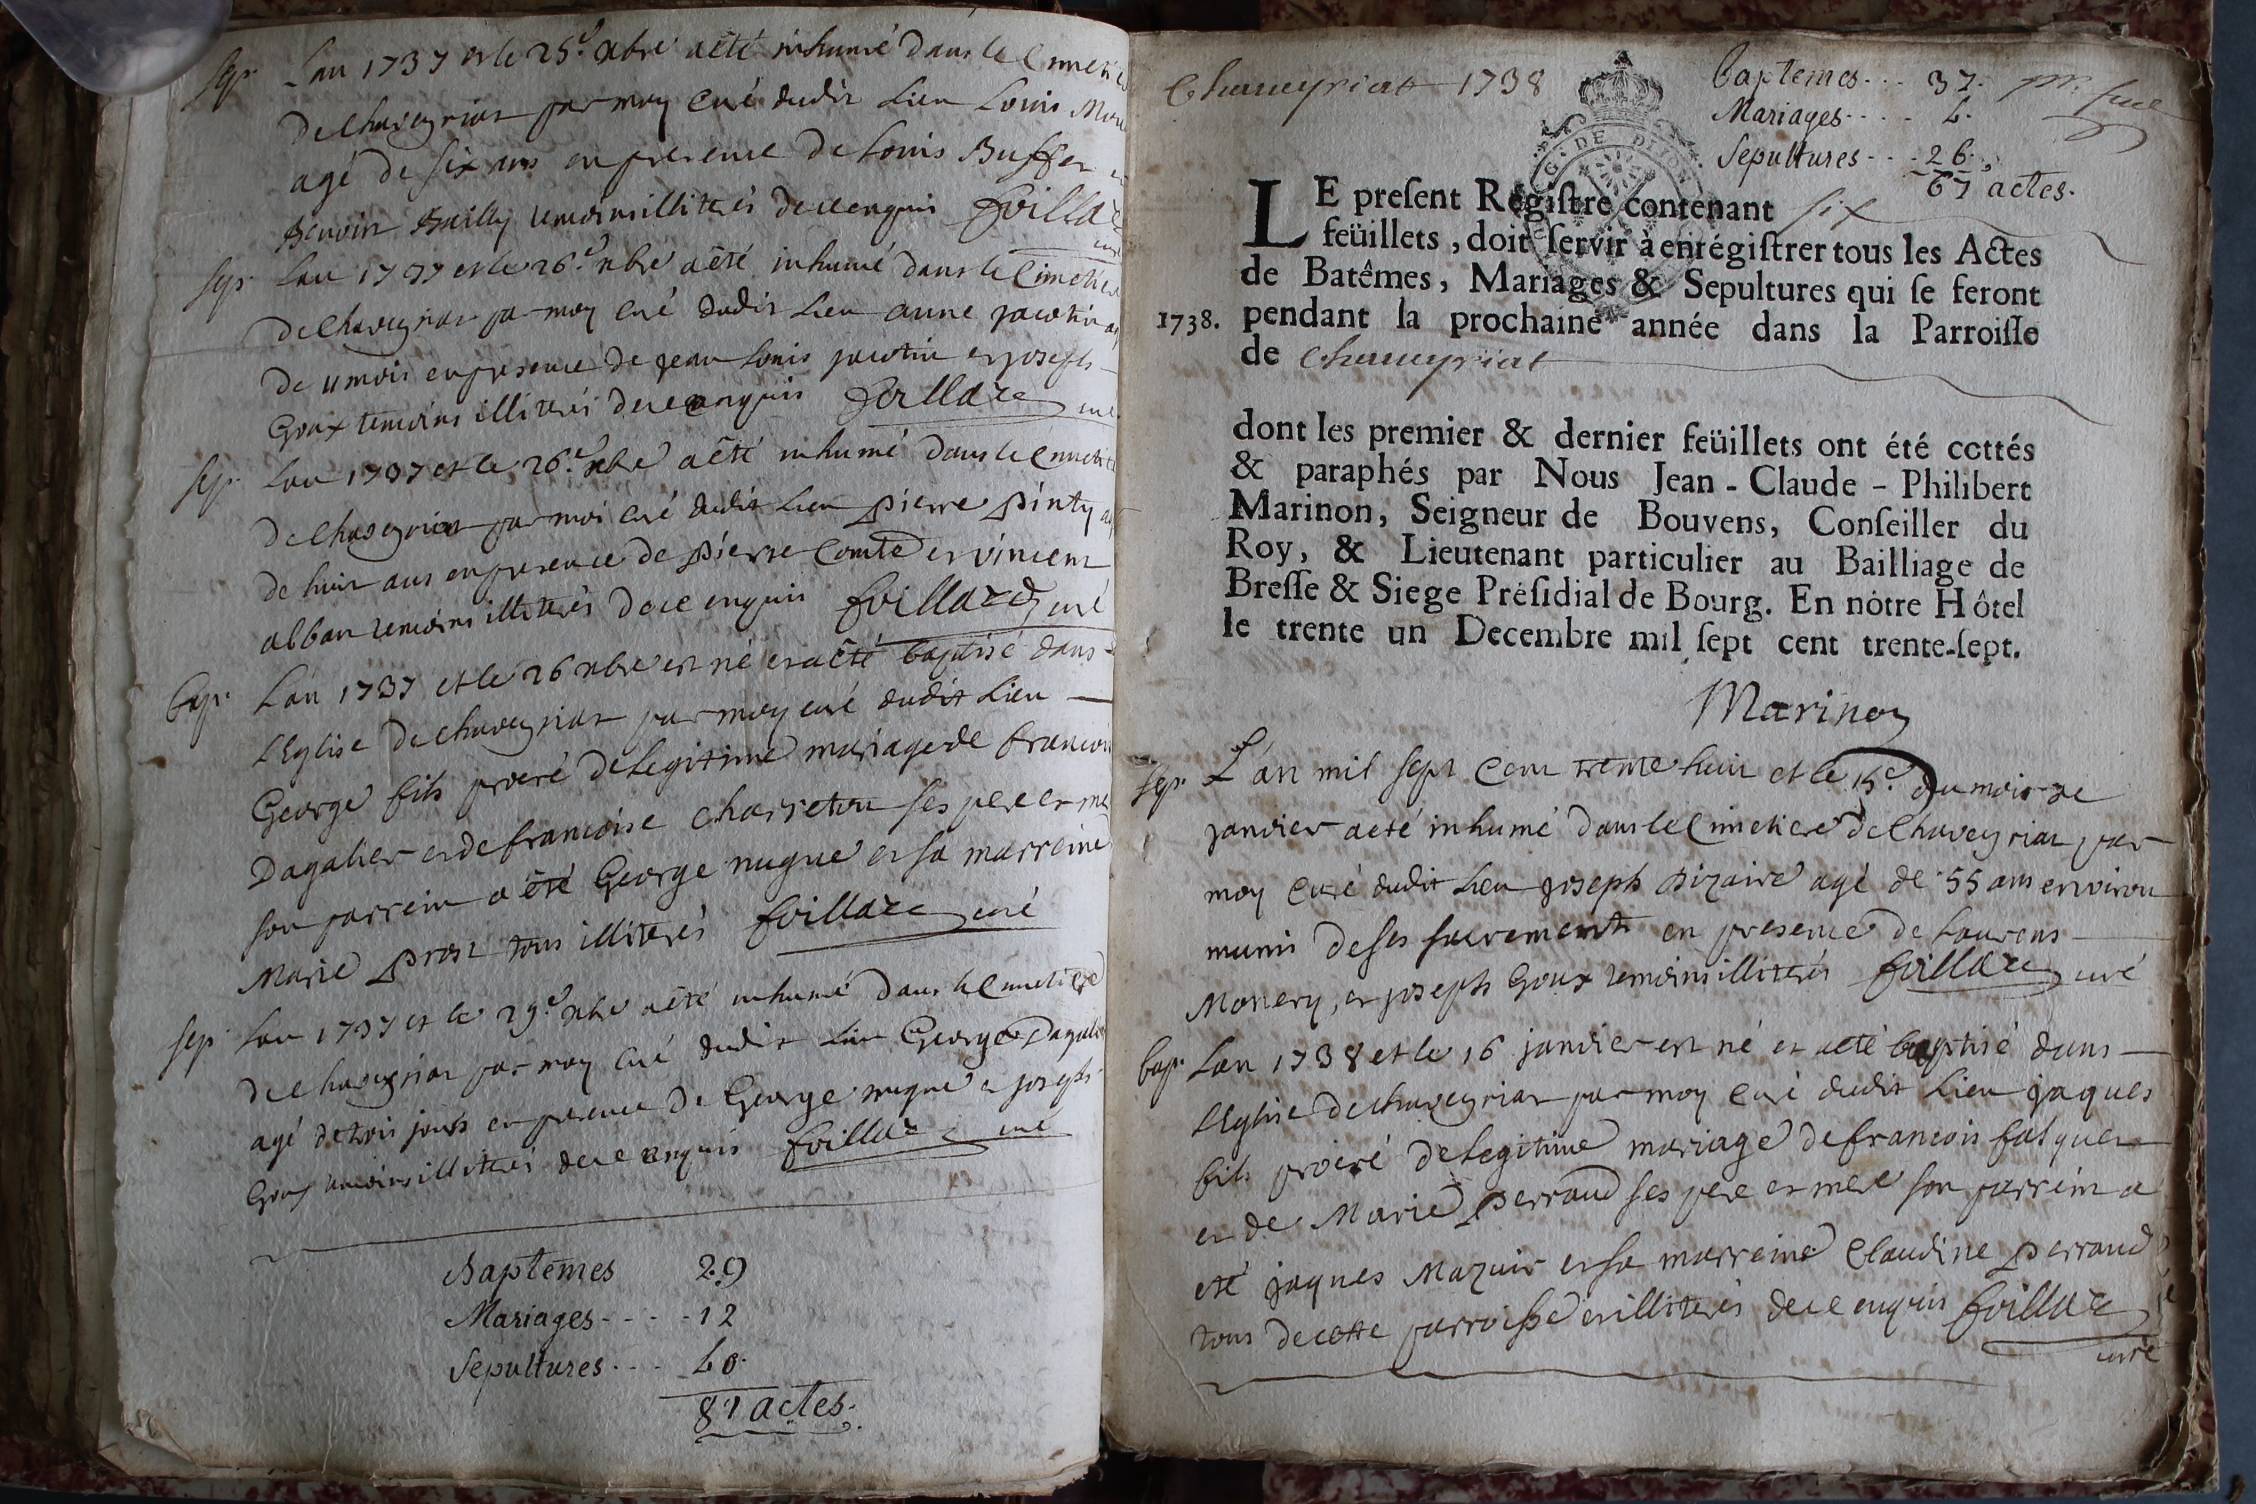 sep. Lan 1737 et le 25.e xbre a êté inhumé dans le Cimetie
de Chaveyriat par moy curé dudit Lieu Louis
agé de six ans en presence de Louis Buffet
Benoit Bailly temoins illiterés de ce enquis foillard
curé
sep. Lan 1737 et le 26.e xbre a êté inhumé dans le Cimetiere
de Chaveyriat par moy curé dudit Lieu anne jacotin
de 11 mois en presence de jean Louis jacotin et joseph
Goux temoins illiterés de ce enquis foillard curé
sep. Lan 1737 et le 26.e xbre a êté inhumé dans le Cimetie
de Chaveyriat par moi curé dudit Lieu pierre pinty
de huit ans en presence de pierre Comte et vincent
alban temoins illiterés de ce enquis foillard curé
bap. Lan 1737 et le 26 xbre est né et a êté baptisé dans
lEglise de chaveyriat par moy curé dudit Lieu
George fils procré de legitime mariage de francois
Dagalier et de francoise charreton ses pere et me
son parrein a êté George nugue et sa marreine
Marie prost tous illiterés foillard curé
sep. Lan 1737 et le 29.e xbre a êté inhumé dans le Cimetiere
de Chaveyriat par moy curé dudit Lieu George Dagali
agé de trois jours en presence de George nugue et joseph
Goux temoins illiterés de ce enquis foillard curé
Baptemes 29
Mariages - - - - 12
Sepultures - - - 40
81 actes.
Chaveyriat 1738
Baptemes - - - 37.
Mariages - - - - 4.
Sepultures - - - 26.
67 actes.
LE presēnt Régiſtre contenant six
feüillets, doit ſervir à enrégiſtrer tous les Actes
de Batêmes, Mariages & Sepultures qui ſe feront
1738. pendant la prochaine année dans la Parroiſſe
de Chaveyriat
dont les premier & dernier feüillets ont été cottés
& paraphés par Nous Jean-Claude-Philibert
Marinon, Seigneur de Bouvens, Conſeiller du
Roy, & Lieutenant particulier au Bailliage de
Breſſe & Siege Préſidial de Bourg. En nôtre Hôtel
le trente un Decembre mil ſept cent trente-ſept.
Marinon
sep. L'an mil sept cent trente huit et le 15.e du mois de
janvier a eté inhumé dans le Cimetiere de Chaveyriat par
moy curé dudit Lieu joseph Bizaire agé de 55 ans environ
muni de ses sacrements en presence de Laurens
Monery, et joseph Goux temoins illiterés foillard curé
bap. Lan 1738 et le 16 janvier est né et a eté baptisé dans
lEglise de chaveyriat par moy curé dudit Lieu jaques
fils procré de legitime mariage de francois falquet
et de Marie perraud ses pere et mere son parrein a
eté jaques Mazuir et sa marreine Claudine perraud
tous de cette parroisse et illiterés de ce enquis foillard
curé